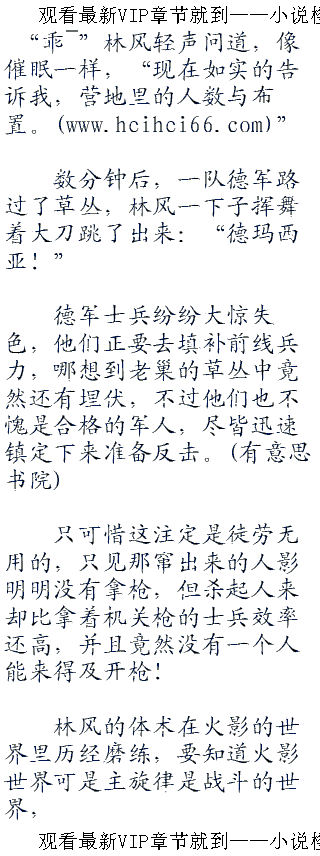 观看最新VIP章节就到——小说检
“乖~”林风轻声问道，像
催眠一样，“现在如实的告
诉我，营地里的人数与布
置。(www.hcihci66.com)”
数分钟后，一队德军路
过了草丛，林风一下子挥舞
着大刀跳了出来：“德玛西
亚！”
德军士兵纷纷大惊失
色，他们正要去填补前线兵
力，哪想到老巢的草丛中竟
然还有埋伏，不过他们也不
愧是合格的军人，尽皆迅速
镇定下来准备反击。(有意思
书院)
只可惜这注定是徒劳无
用的，只见那窜出来的人影
明明没有拿枪，但杀起人来
却比拿着机关枪的士兵效率
还高，并且竟然没有一个人
能来得及开枪！
林风的体术在火影的世
界里历经磨练，要知道火影
世界可是主旋律是战斗的世
界，
观看最新VIP章节就到——小说检